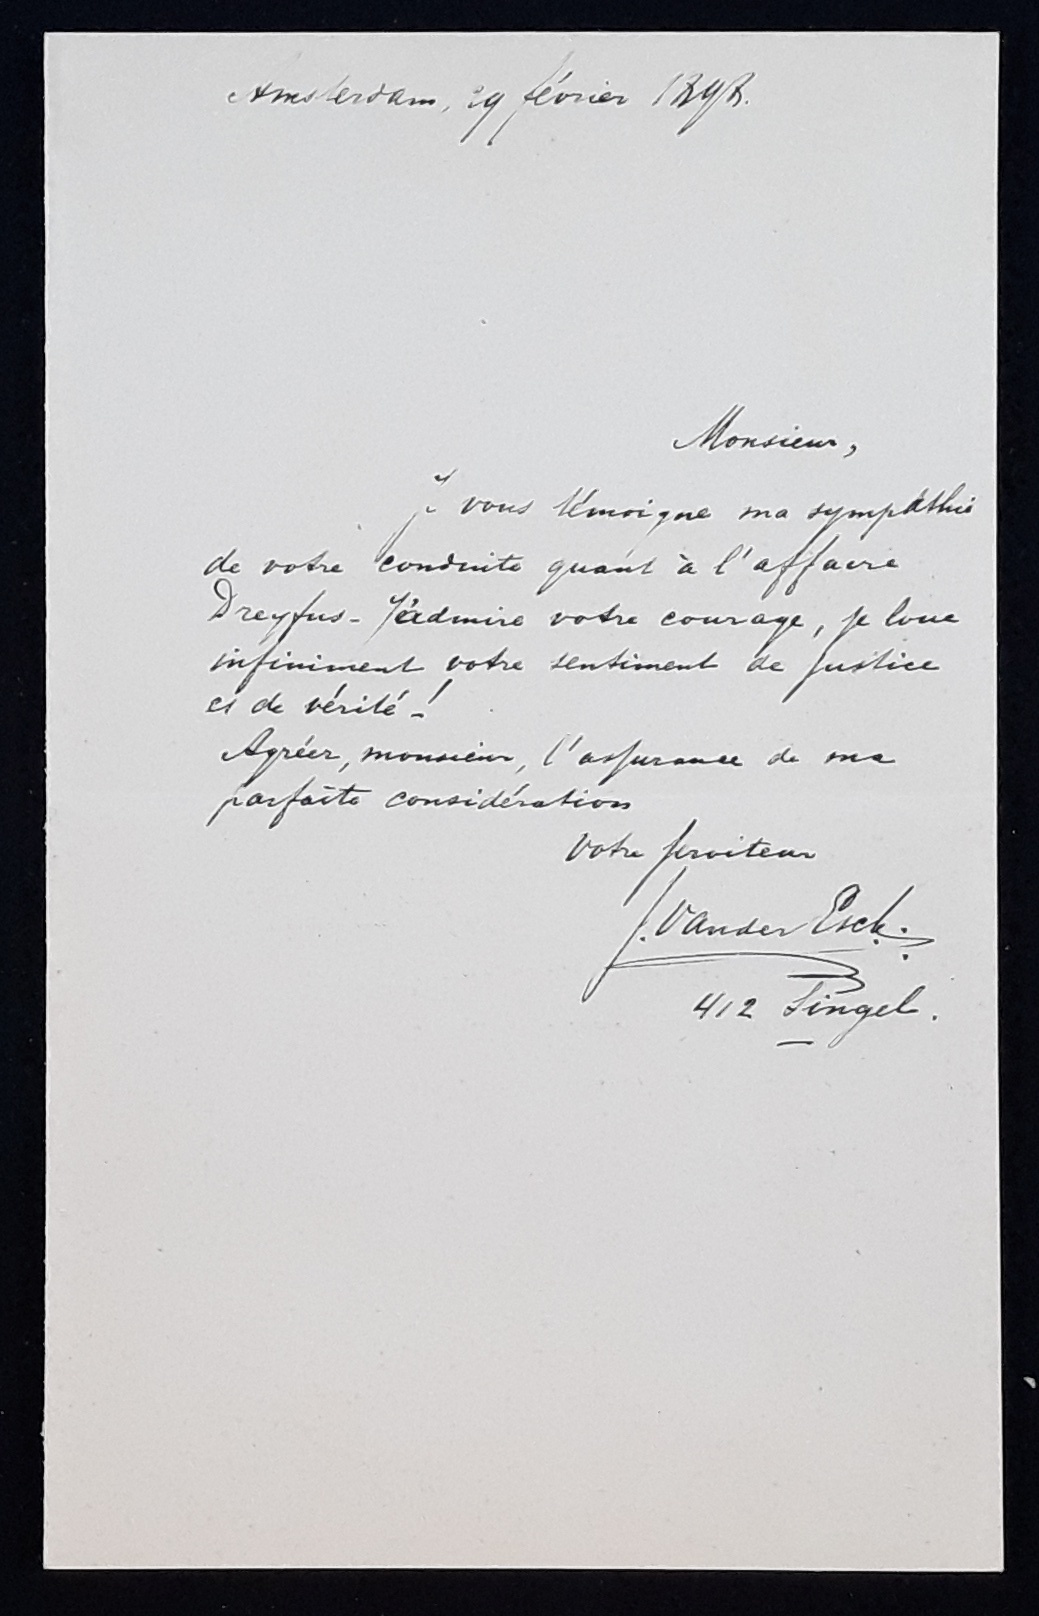 Amsterdam, 29 février 1898.
Monsieur,
Je vous témoigne ma sympathie
de votre conduite quant à l'affaire
Dreyfus - J'admire votre courage, je loue
infiniment votre sentiment de justice
et de vérité - !
Agréer, monsieur, l'assurance de ma
parfaite considération
Votre serviteur
J. Vander Esch.
412 Singel.